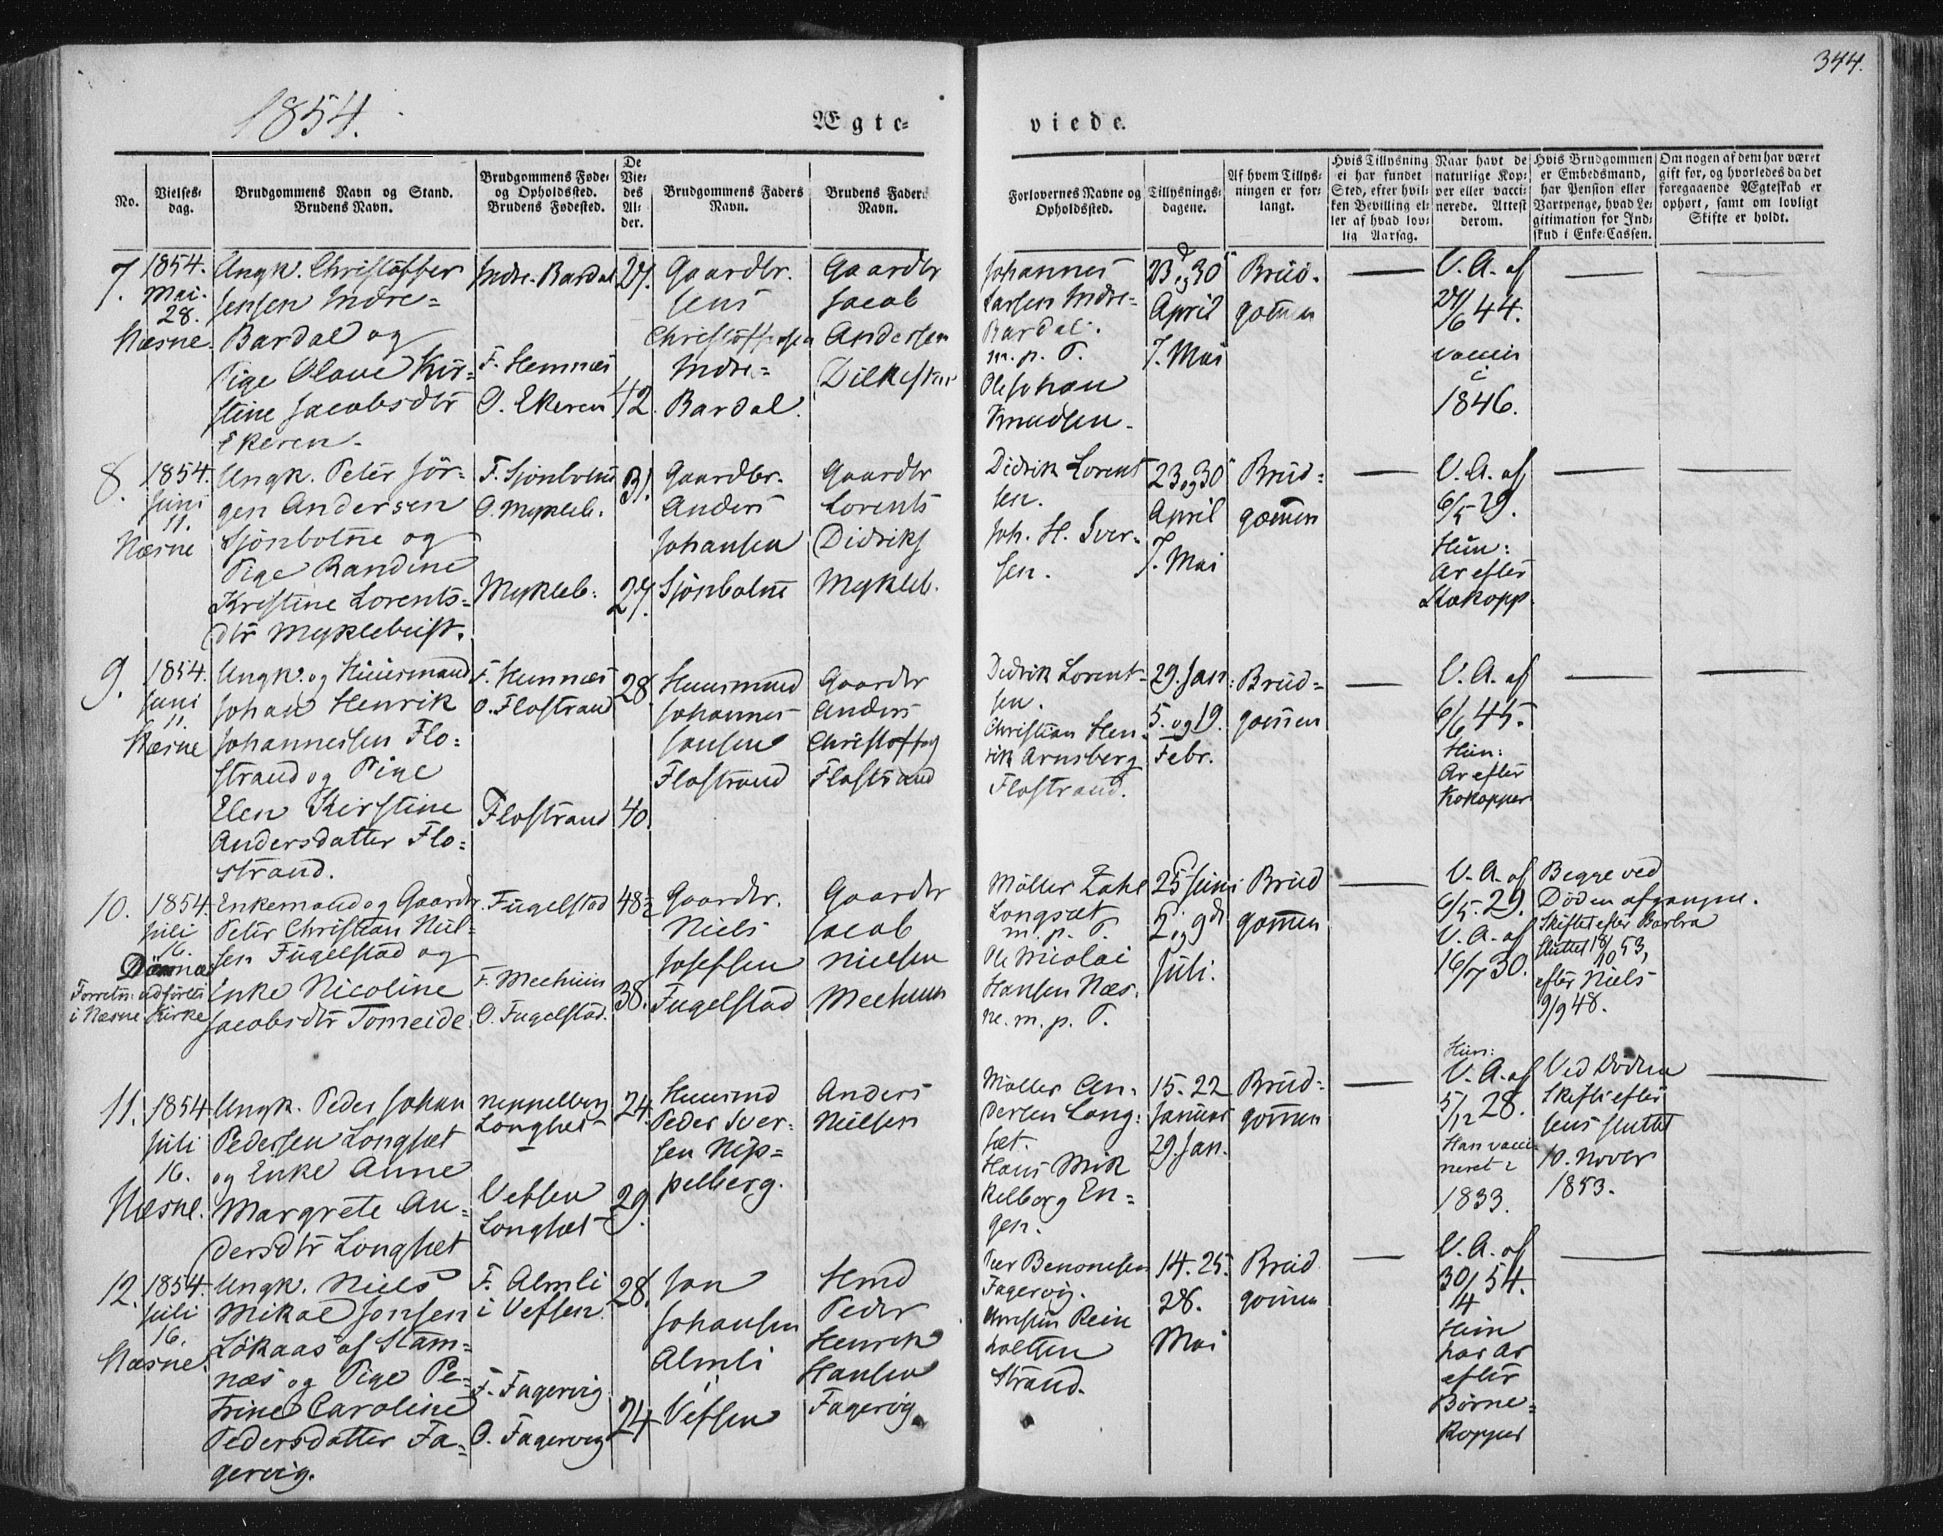 344.
1854.
Ægte=
viede.
No.
Vielses-
dag.
Brudgommens Navn og Stand.
Brudens Navn.
Brudgommens Føde-
og Opholdssted.
Brudens Fødested.
De
Vie-
des
Al-
der.
Brudgommens Faders
Navn.
Brudens Faders
Navn.
Forlovernes Navne og
Opholdssted.
Tillysnings-
dagene.
Af hvem Tillys-
ningen er for-
langt.
Hvis Tillysning
ei har fundet
Sted, efter hvil-
ken Bevilling el-
ler af hvad lov-
lig Aarsag.
Naar havt de
naturlige Kop-
per eller vacci-
nerede. Attest
derom.
Hvis Brudgommen
er Embedsmand,
har Pension eller
Vartpenge, hvad Le-
gitimation for Ind-
skud i Enke-Cassen.
Om nogen af dem har været
gift før, og hvorledes da det
foregaaende Ægteskab er
ophørt, samt om lovligt
Skifte er holdt.
7.
1854.
Mai.
28.
Næsne.
Ungk. Christoffer
Jensen Indre=
Bardal og
Pige Olave Kir=
stine Jacobsdtr
Ekeren.
Indre-Bardal
F. Hemnæs
O. Ekeren
27.
42.
Gaardbr.
Jens
Christoffersen
Indre=
Bardal.
Gaardbr
Jacob
Andersen
Johannes
Larsen Indre=
Bardal.
m. p. P.
Ole Johan
Knudsen.
23 og 30
April
7. Mai
Brud-
gommen
V. A. af
27/6 44.
vaccin
i
1846.
8.
1854.
Juni
11.
Næsne
Ungk. Peter Jør=
gen Andersen
Sjonbotne og
Pige Randine
Kristine Lorents=
dtr Myklebust.
F. Sjonbotne
O. Mykleb.
Mykleb.
31.
27.
Gaardbr.
Anders
Johansen
Sjonbotne
Gaardbr
Lorents
Didriks
Mykleb.
Didrik Lorent
sen.
Joh. H. Iver=
sen.
23 og 30
April
7. Mai
Brud=
gommen
V. A. af
6/5 29.
Hun:
Ar efter
Kokopp.
9.
1854.
Juni
11.
Næsne
Ungk. og Huusmand
Johan Henrik
Johannessen Flo=
strand og Pige
Elen Kirstine
Andersdatter Flo=
strand.
F. Hemnæs
O. Flostrand
Flostrand
28.
40.
Huusmand
Johannes
Jonsen
Flostrand
Gaardbr
Anders
Christoffs
Flostrand
Didrik Lorent=
sen.
Christian Hen=
rik Arnsberg
Flostrand.
29. Jan:
5. og 19.
Febr.
Brud=
gommen
V. A. af
6/6 45.
Hun:
Ar efter
Kokopper
10.
1854.
Juli
16.
Dønnæs
Forretn: udførtes
i Næsne Kirke
Enkemand og Gaardbr
Peter Christian Niel=
sen Fugelstad og
Enke Nicoline
Jacobsdtr Tomeide.
Fugelstad
F. Meehuun
O. Fugelstad.
48½
38.
Gaardbr.
Niels
Josefsen
Fugelstad
Gaardbr
Jacob
Nielsen
Meehuun
Møller Zahl
Longsæt
m. p. P.
Ole Nicolai
Hansen Næs=
ne. m. p. P.
25 Juni
2. og 9de
Juli.
Brud
gommen
V. A. af
6/5. 29.
V. A. af
16/7 30.
Begge ved
Døden afgangne.
Skiftet efter Barbra
sluttet 18/10 53,
efter Niels
9/9 48.
11.
1854
Juli
16.
Næsne.
Ungk. Peder Johan
Pedersen Longset
og Enke Anne
Margrete An=
dersdtr Longset
Neppelberg
Longset
Vefsen
Longset
24.
29.
Huusmd
Peder Iver=
sen Nip=
pelberg.
Anders
Nielsen
Møller An=
dersen Long=
sæt.
Hans Mik
kelborg En=
gen.
15. 22
Januar
29. Jan.
Brud=
gommen
Hun:
V. A. af
5/12 28.
Han vacci=
neret i
1833.
Ved Døden
Skifte efter
Jens sluttet
10. Nover
1853.
12.
1854.
Juli
16.
Næsne.
Ungk. Niels
Mikal Jonsen
Løkaas af Stam=
næs og Pige Pe=
trine Caroline
Pedersdatter Fa=
gervig.
F. Almli
i Vefsen.
F. Fagervig
O. Fagervig
28.
24
Jon
Johansen
Almli
i
Vefsen
Hmd
Peder
Henrik
Hansen
Fagervig.
Peer Benonisen
Fagervig.
Christen Rein
holtsen
Strand.
14. 25.
28.
Mai
Brud
gommen
V. A. af
30/4 54.
Hun
har Ar
efter
Børne=
kopper